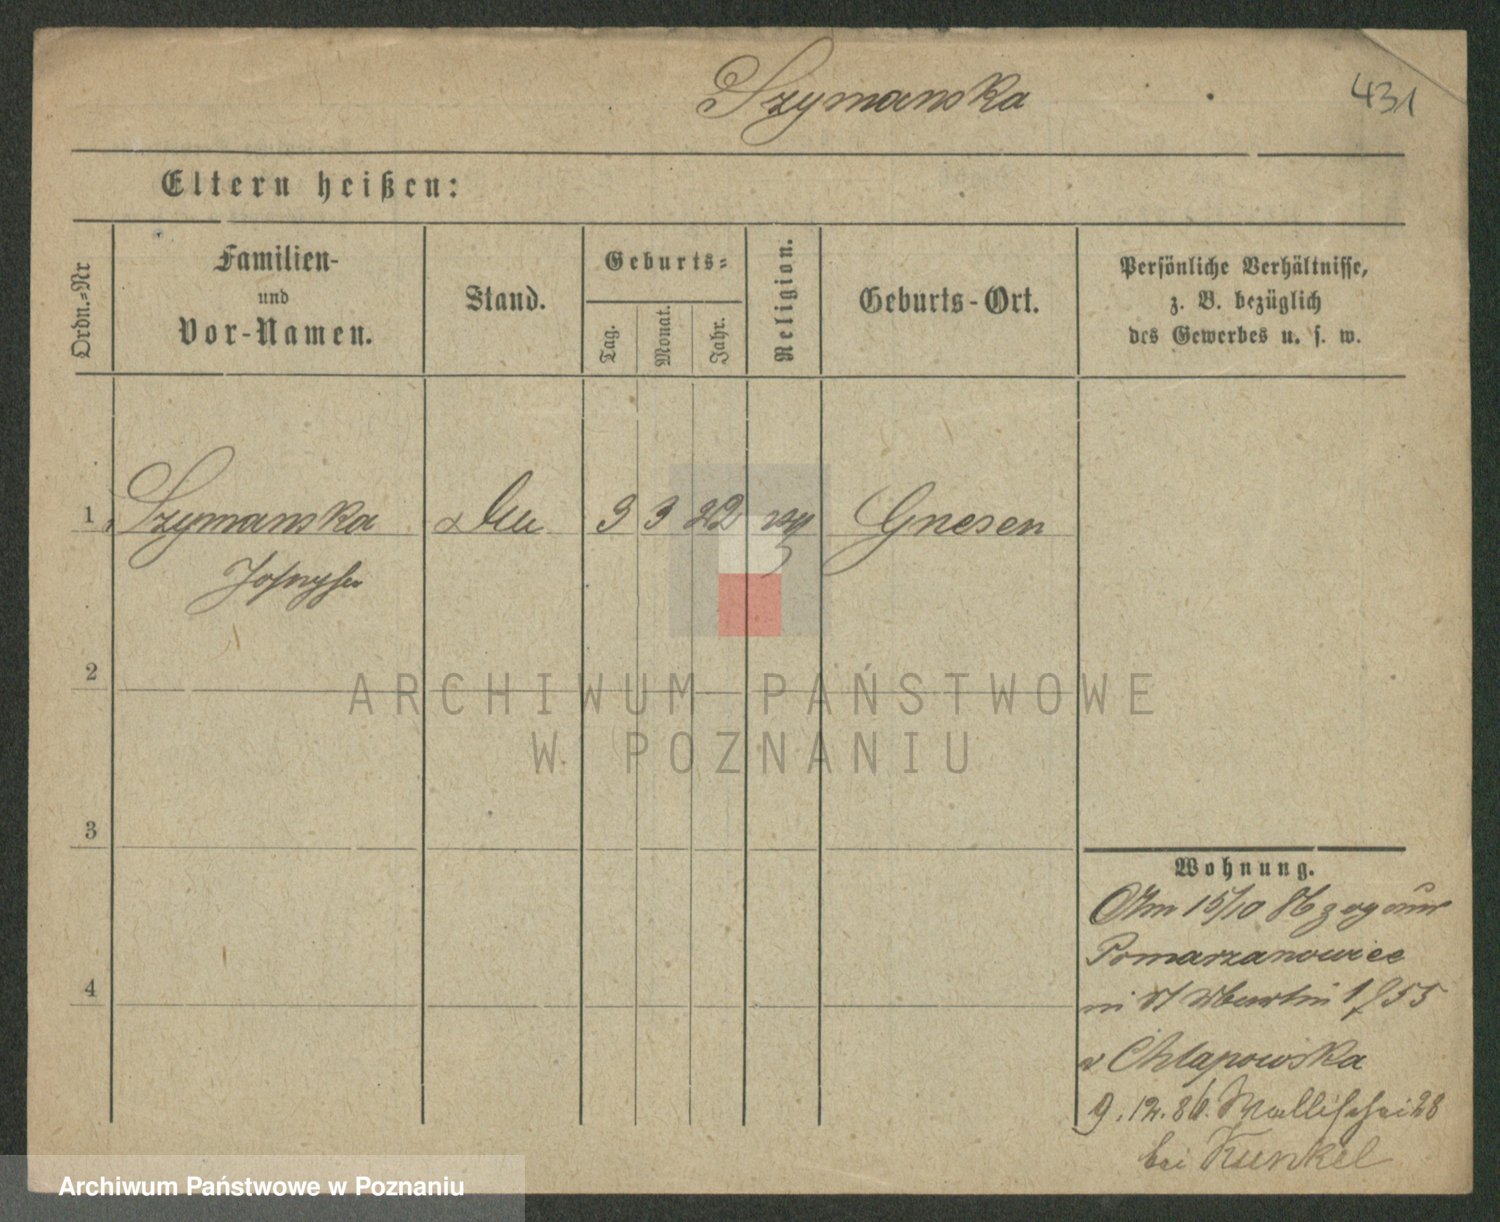 Szymanska
431
Eltern heißen:
Ordn.=Nr
Familien-
und
Vor-Namen.
Stand.
Geburts=
Tag.
Monat.
Jahr.
Religion.
Geburts-Ort.
Persönliche Verhältnisse,
z. B. bezüglich
des Gewerbes u. s. w.
1 Szymanska 3 3 22 Gnesen
2
3
4
ARCHIWUM PAŃSTWOWE
W POZNANIU
Wohnung.
Am 15/10 86
Pomarzanowice
in St Martin 55
Chlapowska
9.12.86. Wallischei 28
bei Kunkel
Archiwum Państwowe w Poznaniu